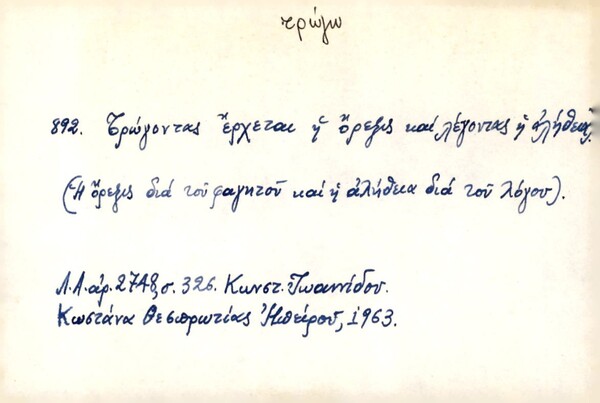 τρώγω
892. Τρώγοντας ἔρχεται ἡ ὄρεξις καί λέγοντας ἡ ἀλήθεια.
(Ἡ ὄρεξις διά τοῦ φαγητοῦ καί ἡ ἀλήθεια διά τοῦ λόγου).
Λ.Α. ἀρ. 2748, σ. 326. Κωνστ. Ἰωαννίδου.
Κωστάνα Θεσπρωτίας Ἠπείρου, 1963.